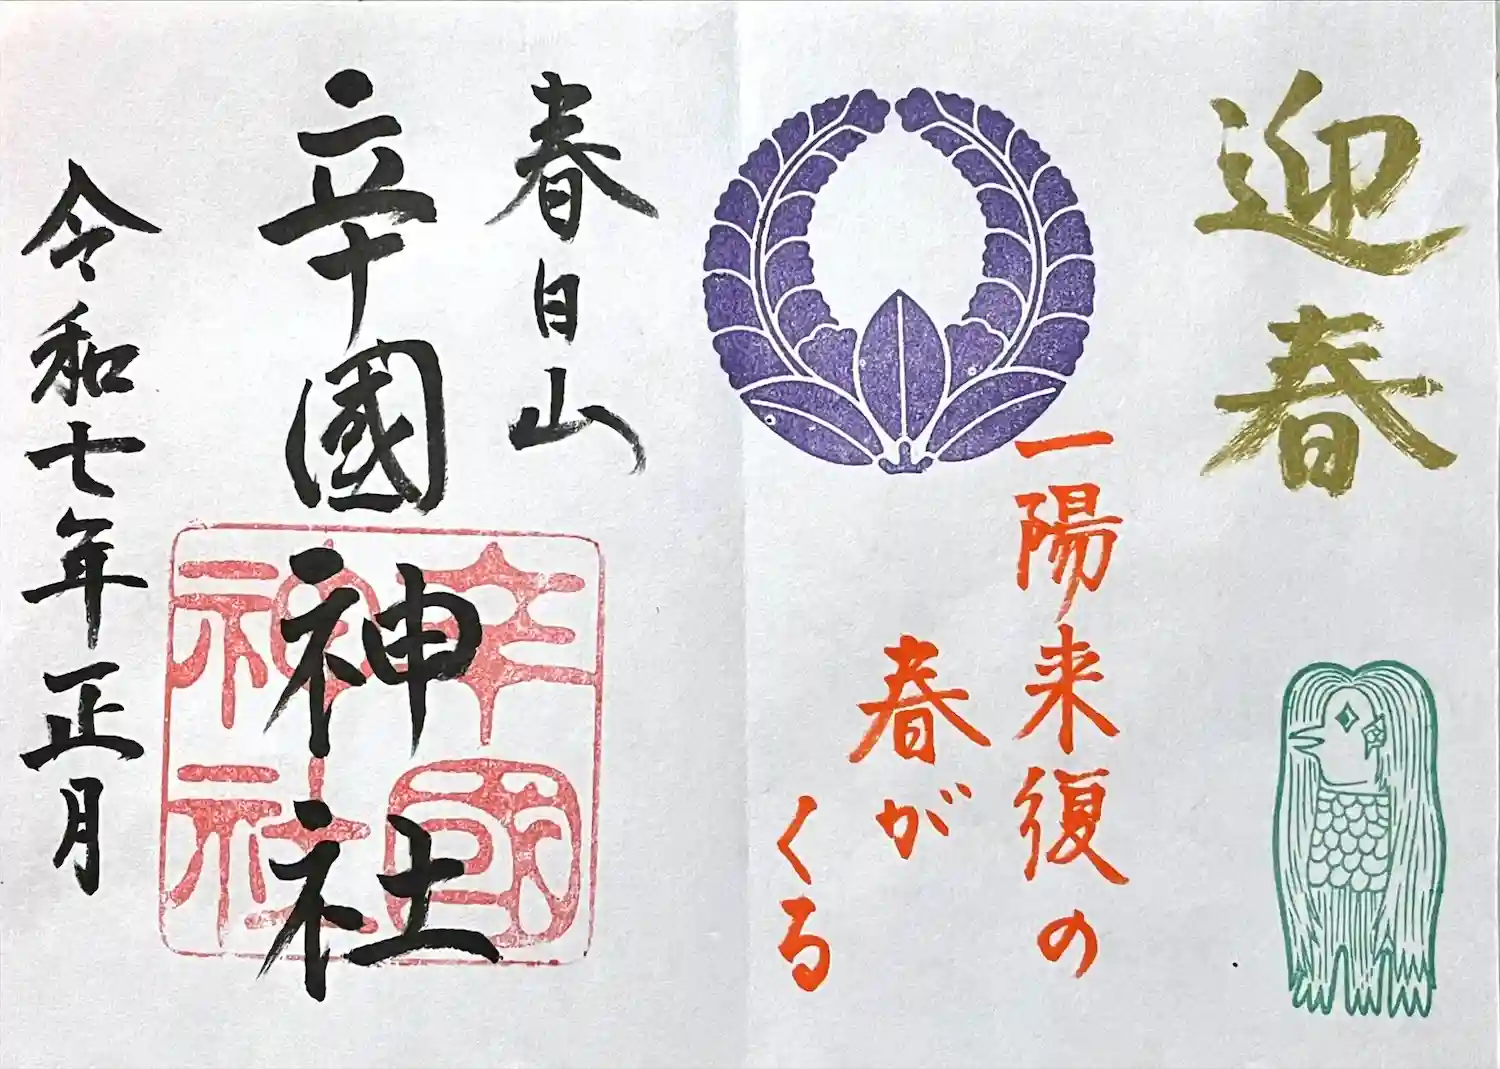 迎春
一陽来復の
春が
くる
春日山
辛國神社
辛國神社
令和七年正月